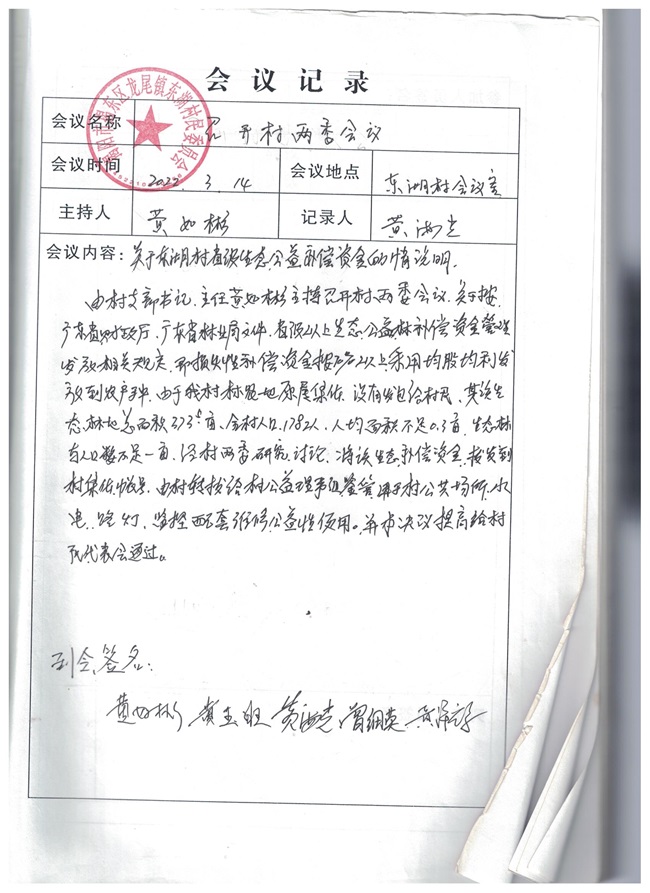 会议记录
揭阳市揭东区龙尾镇东湖村民委员会
会议名称 召开村两委会议
会议时间 2022.3.14 会议地点 东湖村会议室
主持人 黄如彬 记录人 黄
会议内容：关于东湖村省级生态公益补偿资金的情况说明.
由村支部书记、主任黄如彬主持召开村两委会议，关于按
广东省财政厅、广东省林业局文件，省级以上生态公益林补偿资金管理
发放相关规定，即损失性补偿资金按 以上采用均股均利发
放到农户手中。由于我村林地原属集体，没有发包给村民，其该生
态林地总面积373 亩、全村人口1782人，人均面积不足0.3亩，生态林
与人口数不足一亩，经村两委研究讨论，将该生态补偿资金，拨发到
村集体帐号，由村转拨给村公益理事会 管用于村公共场所、水
电、路灯、监控配套维修公益性使用。并 决议提高给村
民代表会通过。
到会签名：
黄如彬 黄 黄 曾 黄